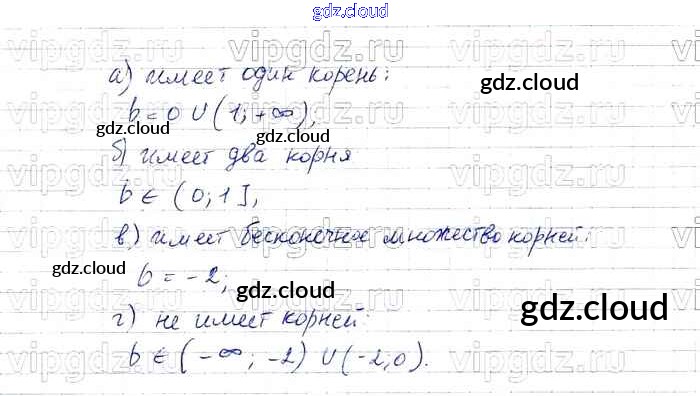 gdz.cloud
а) имеет один корень:
b = 0 ∪ (1; +∞),
б) имеет два корня
b ∈ (0; 1],
в) имеет бесконечное множество корней:
b = -2;
г) не имеет корней:
b ∈ (-∞; -2) ∪ (-2; 0).
gdz.cloud
gdz.cloud
gdz.cloud
gdz.cloud
gdz.cloud
gdz.cloud
vipgdz.ru
vipgdz.ru
vipgdz.ru
vipgdz.ru